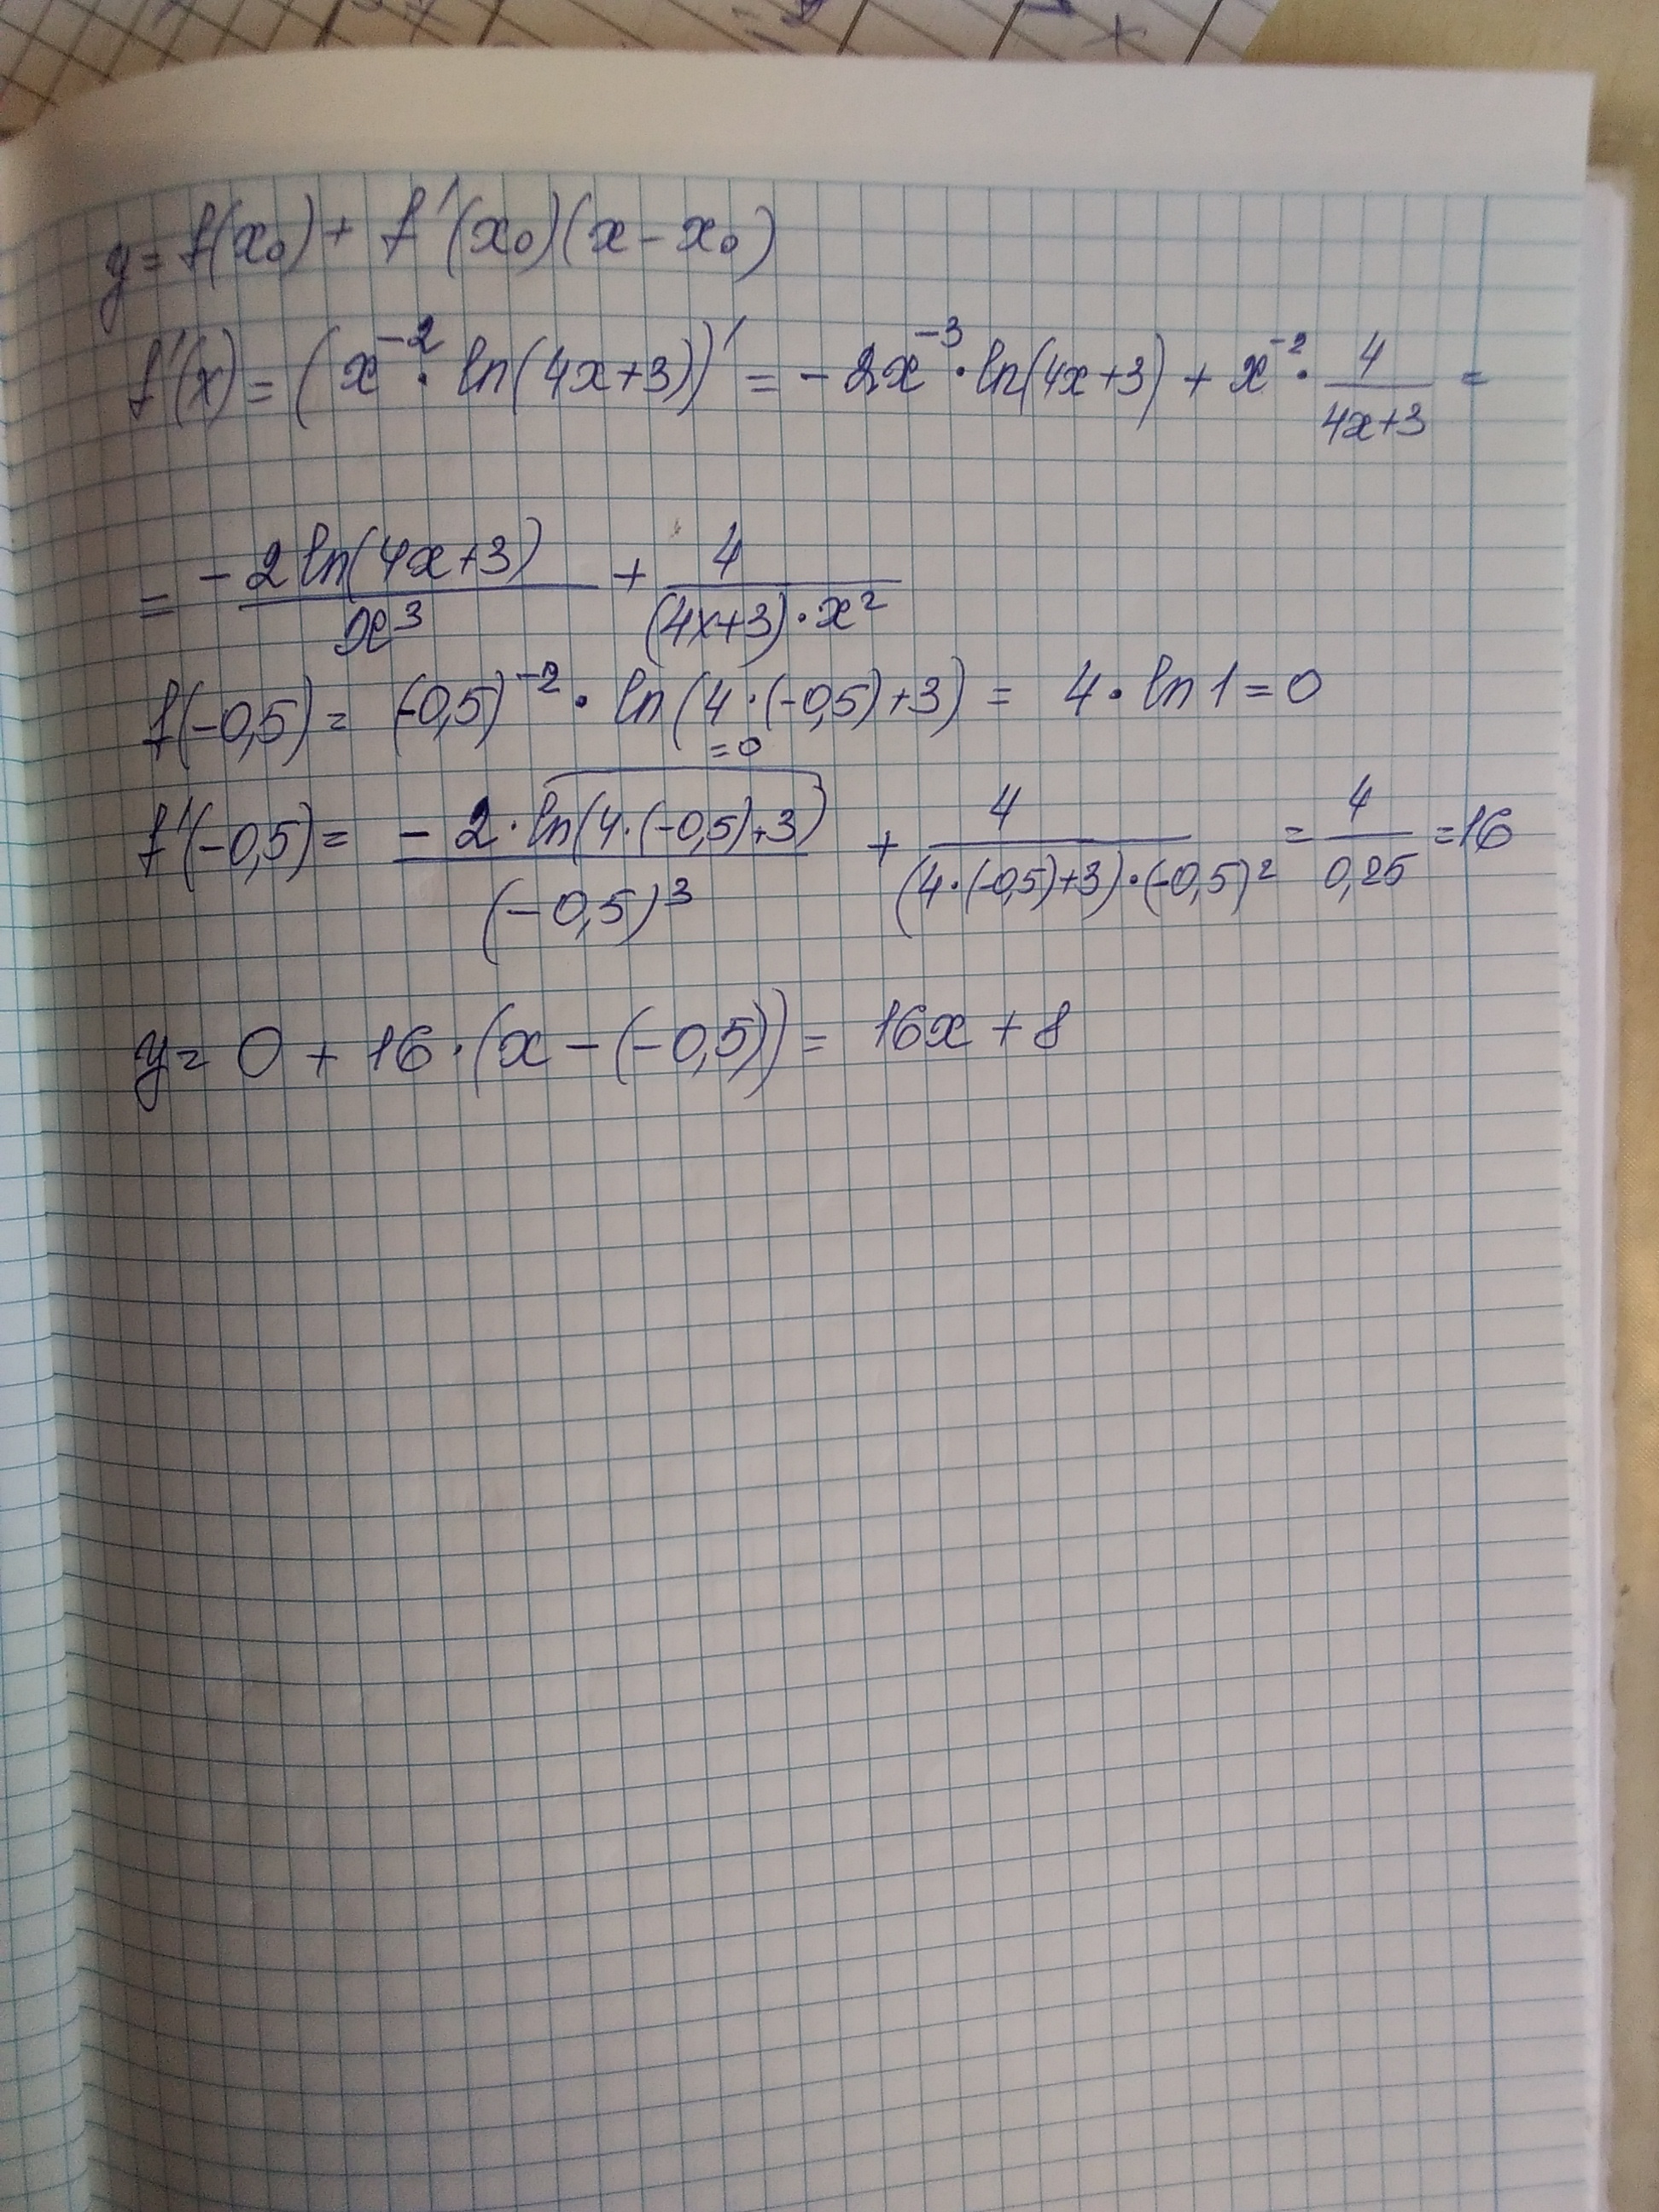 y = f(x₀) + f'(x₀)(x - x₀)
f'(x) = (x⁻² · ln(4x+3))' = -2x⁻³ · ln(4x+3) + x⁻² · 4/(4x+3) =
= -2ln(4x+3)/x³ + 4/((4x+3)·x²)
f(-0,5) = (-0,5)⁻² · ln(4·(-0,5)+3) = 4 · ln1 = 0
=0
f'(-0,5) = -2·ln(4·(-0,5)+3)/(-0,5)³ + 4/((4·(-0,5)+3)·(-0,5)²) = 4/0,25 = 16
y = 0 + 16·(x-(-0,5)) = 16x + 8